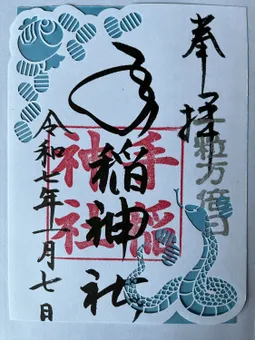 奉拝
一粒万倍日
手稲神社
手稲神社
令和七年一月七日